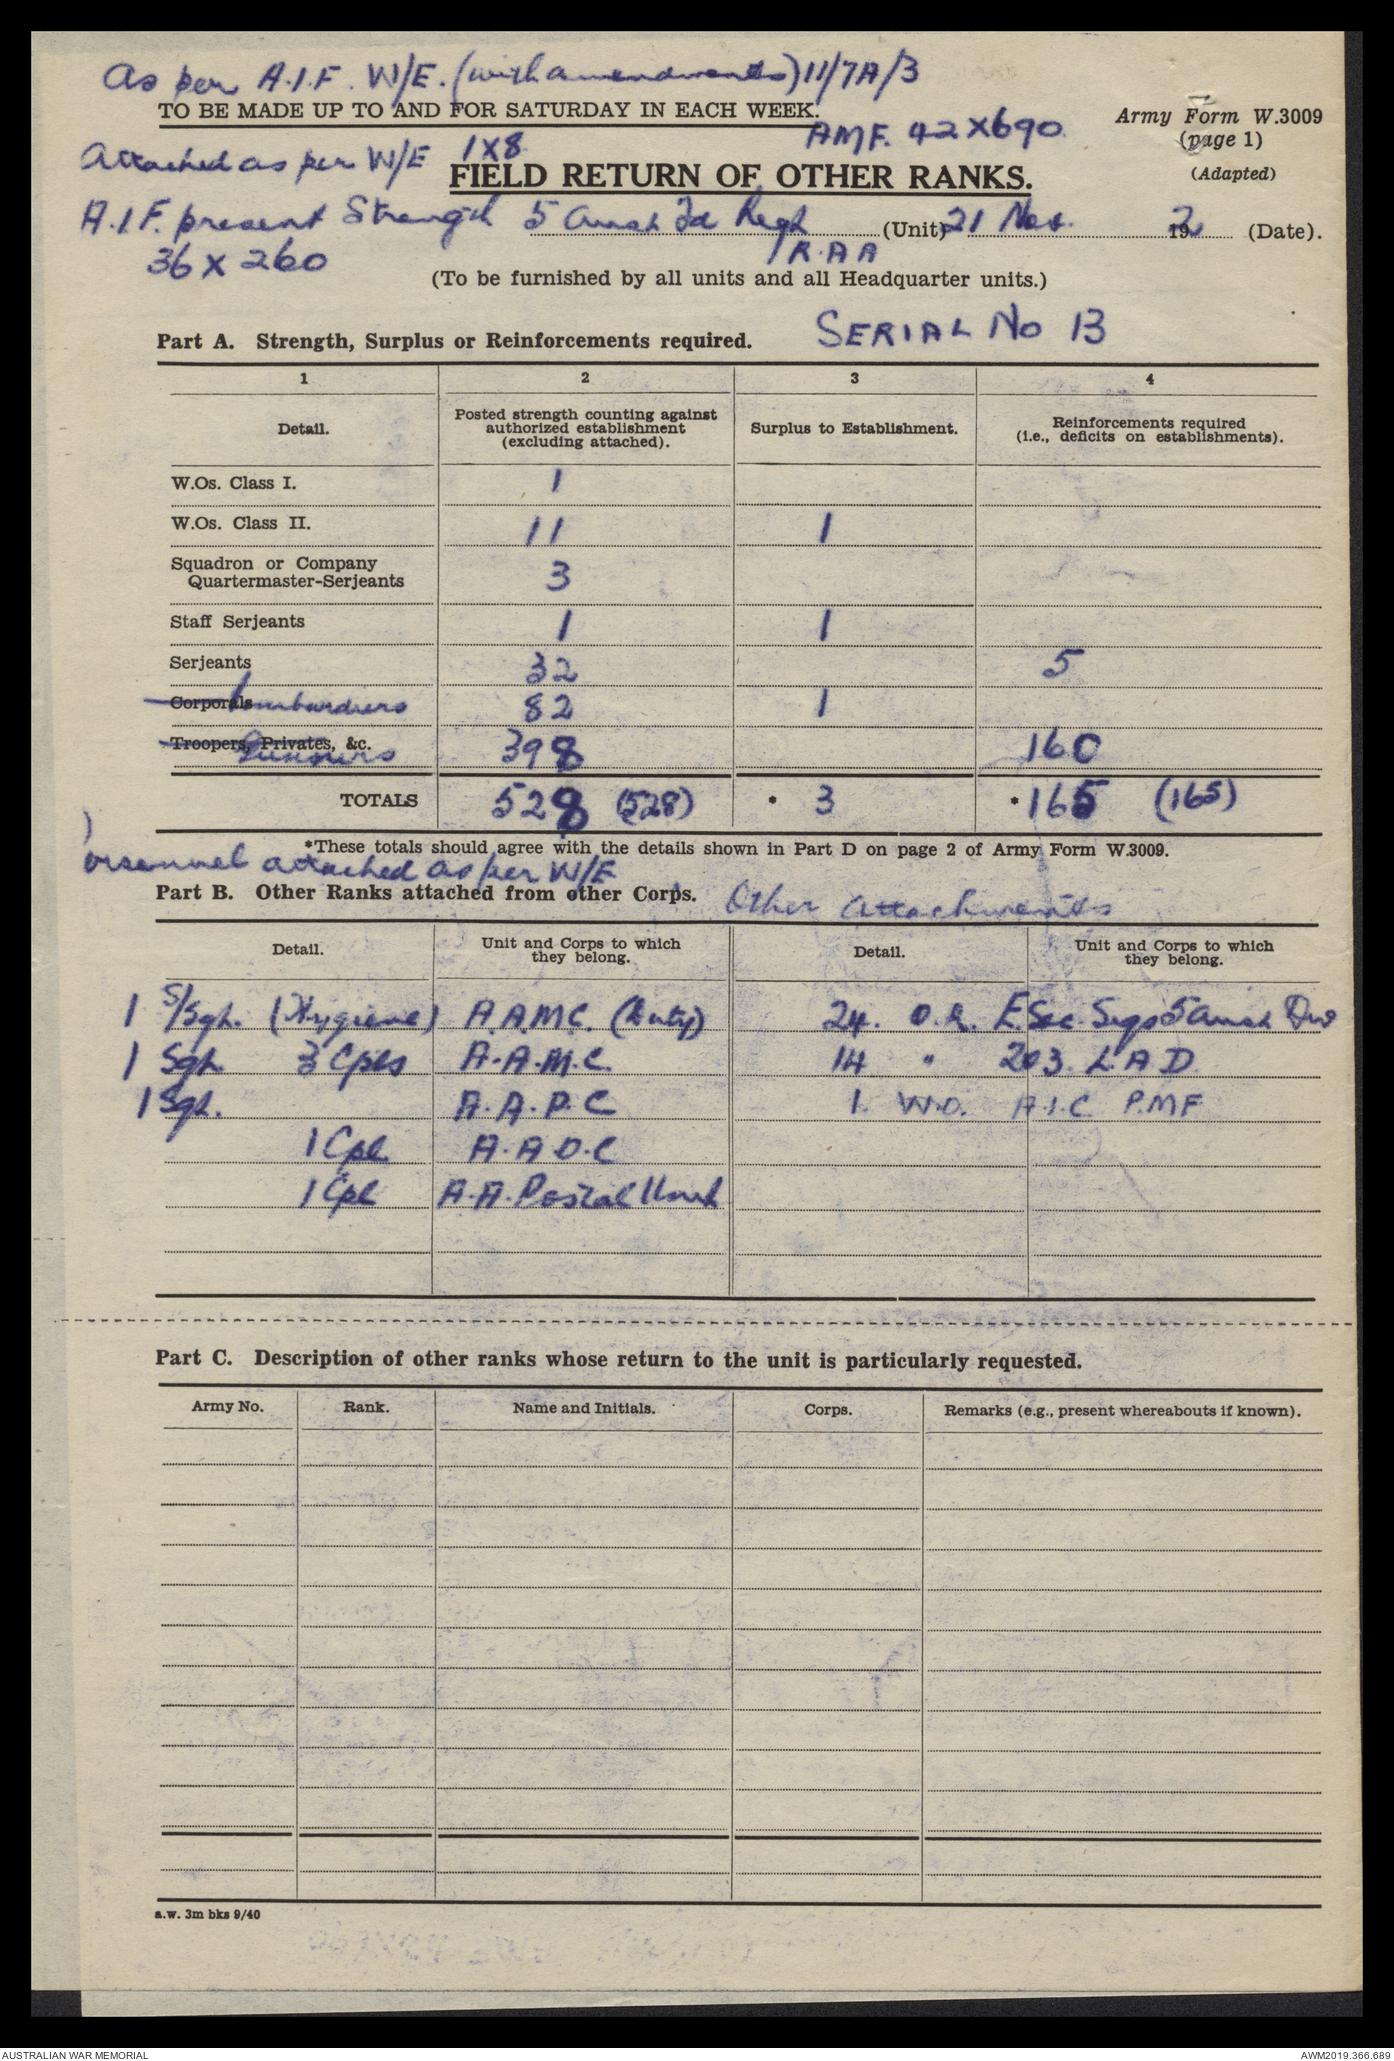 As per A.I.F. W/E. (with amendments) 11/7A/3
TO BE MADE UP TO AND FOR SATURDAY IN EACH WEEK.
Army Form W.3009
(page 1)
(Adapted)
AMF. 42X690
Attached as per W/E 1X8
FIELD RETURN OF OTHER RANKS.
A.I.F. present Strength
36 X 260
5 Aust Fd Regt (Unit) 21 Nov. 192 (Date).
RAA
(To be furnished by all units and all Headquarter units.)
Part A. Strength, Surplus or Reinforcements required. SERIAL No 13
1 2 3 4
Detail. Posted strength counting against authorized establishment (excluding attached). Surplus to Establishment. Reinforcements required (i.e., deficits on establishments).
W.Os. Class I. 1
W.Os. Class II. 11 1
Squadron or Company Quartermaster-Serjeants 3
Staff Serjeants 1 1
Serjeants 32 5
Corporals Bombardiers 82 1
Troopers, Privates, &c. Gunners 398 160
TOTALS 528 (528) * 3 * 165 (165)
*These totals should agree with the details shown in Part D on page 2 of Army Form W.3009.
Personnel attached as per W/E
Part B. Other Ranks attached from other Corps. Other Attachments
Detail. Unit and Corps to which they belong. Detail. Unit and Corps to which they belong.
1 S/Sgt. (Hygiene) A.A.M.C. 24. O.R. E Sec. Sigs 5 Aust Div
1 Sgt. 3 Cpls A.A.M.C. 14 " 203. L.A.D.
1 Sgt. A.A.P.C 1. W.O. A.I.C P.M.F
1 Cpl A.A.O.C
1 Cpl A.A. Postal Unit
Part C. Description of other ranks whose return to the unit is particularly requested.
Army No. Rank. Name and Initials. Corps. Remarks (e.g., present whereabouts if known).
a.w. 3m bks 9/40
AUSTRALIAN WAR MEMORIAL
AWM2019.366.689